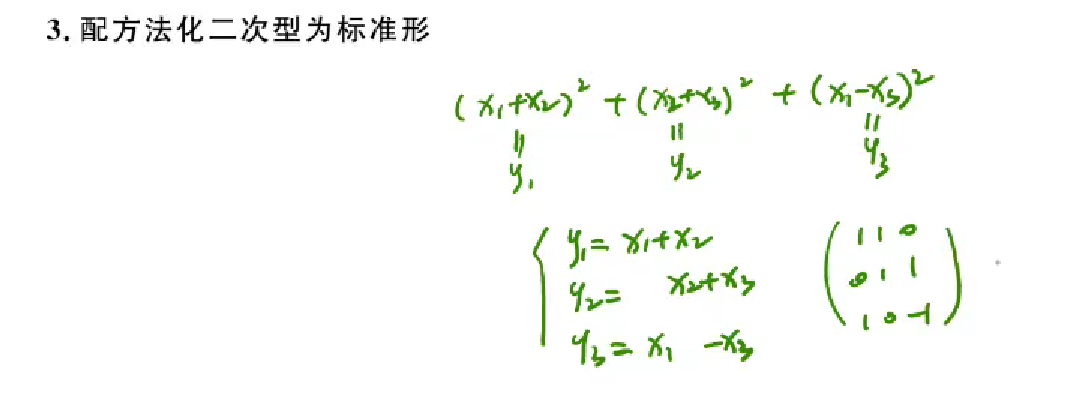 3. 配方法化二次型为标准形
(x₁+x₂)² + (x₂+x₃)² + (x₁-x₃)²
|| || ||
y₁ y₂ y₃
{ y₁ = x₁+x₂
y₂ = x₂+x₃
y₃ = x₁ -x₃
( 1 1 0
0 1 1
1 0 -1 )